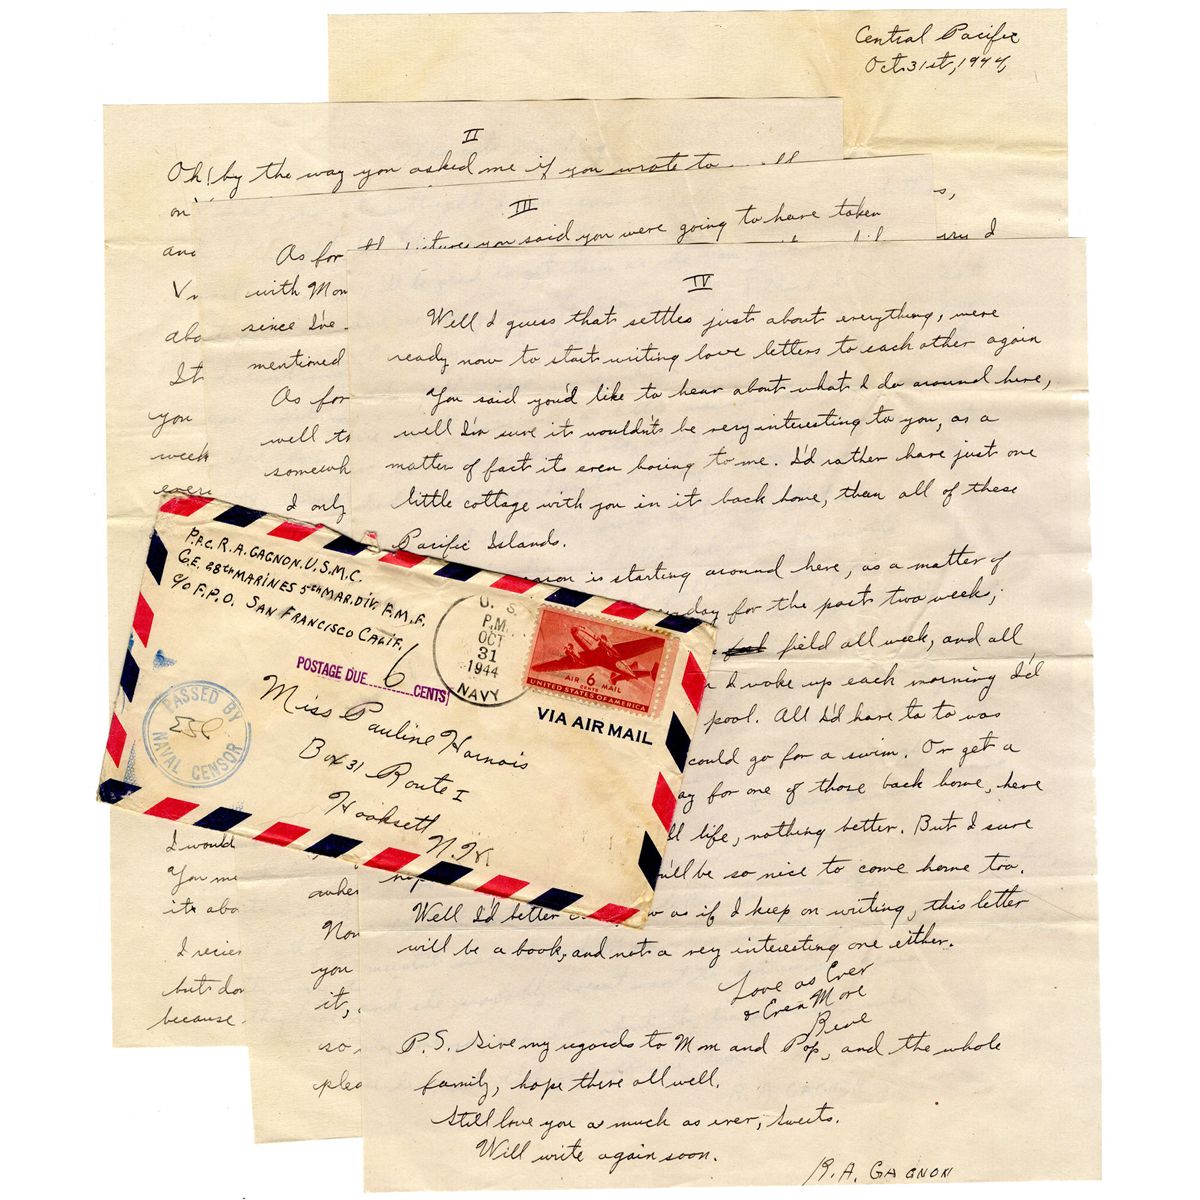 Central Pacific
Oct. 31st, 1944,
II
Oh! by the way you asked me if you wrote to
on
and
V
abo
It
you
week
every
I would
You me
it abo
I recie
but don
because
III
As for the pictures you said you were going to have taken
with Mom
since I've
mentioned
As for
well th
somewh
I only
when
Now
you
it,
so
plea
IV
Well I guess that settles just about everything, were
ready now to start writing love letters to each other again
You said you'd like to hear about what I do around here,
well I'm sure it wouldn't be very interesting to you, as a
matter of fact its even boring to me. I'd rather have just one
little cottage with you in it back home, than all of these
Pacific Islands.
is starting around here, as a matter of
day for the past two week,
field all week, and all
I woke up each morning I'd
pool. All I'd have to to was
could go for a swim. Or get a
ay for one of those back home, here
ll life, nothing better. But I sure
'll be so nice to come home too.
Well I'd better c w as if I keep on writing, this letter
will be a book, and not a very interesting one either.
Love as Ever
& Even More
Rene
P.S. Give my regards to Mom and Pop, and the whole
family, hope there all well.
Still love you a much as ever, Sweets.
Will write again soon.
R. A. GAGNON
P.F.C. R.A. GAGNON. U.S.M.C.
C.E. 28TH MARINES 5TH MAR. DIV. F.M.F.
C/O F.P.O. SAN FRANCISCO CALIF.
POSTAGE DUE 6 CENTS
U. S.
P.M.
OCT
31
1944
NAVY
AIR 6 MAIL
CENTS
UNITED STATES OF AMERICA
VIA AIR MAIL
PASSED BY
NAVAL CENSOR
Miss Pauline Harnois
Box 31 Route I
Hooksett
N.H.